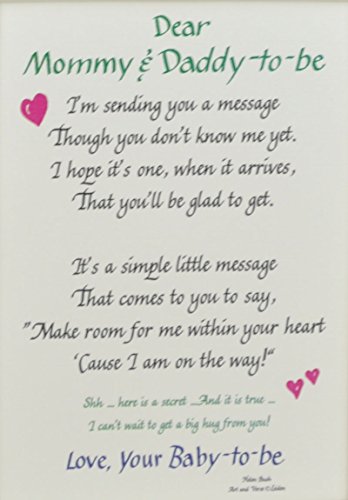 Dear
Mommy & Daddy-to-be
I'm sending you a message
Though you don't know me yet.
I hope it's one, when it arrives,
That you'll be glad to get.
It's a simple little message
That comes to you to say,
"Make room for me within your heart
'Cause I am on the way!"
Shh ... here is a secret ...And it is true ...
I can't wait to get a big hug from you!
Love, Your Baby-to-be
Helen Bush
Art and Verse ©